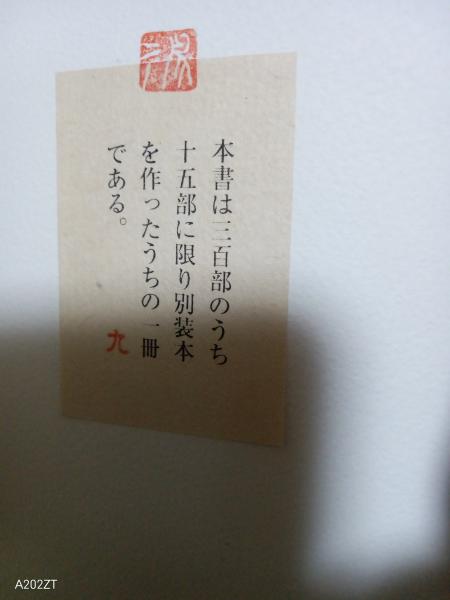 本書は三百部のうち
十五部に限り別装本
を作ったうちの一冊
である。 九
A202ZT